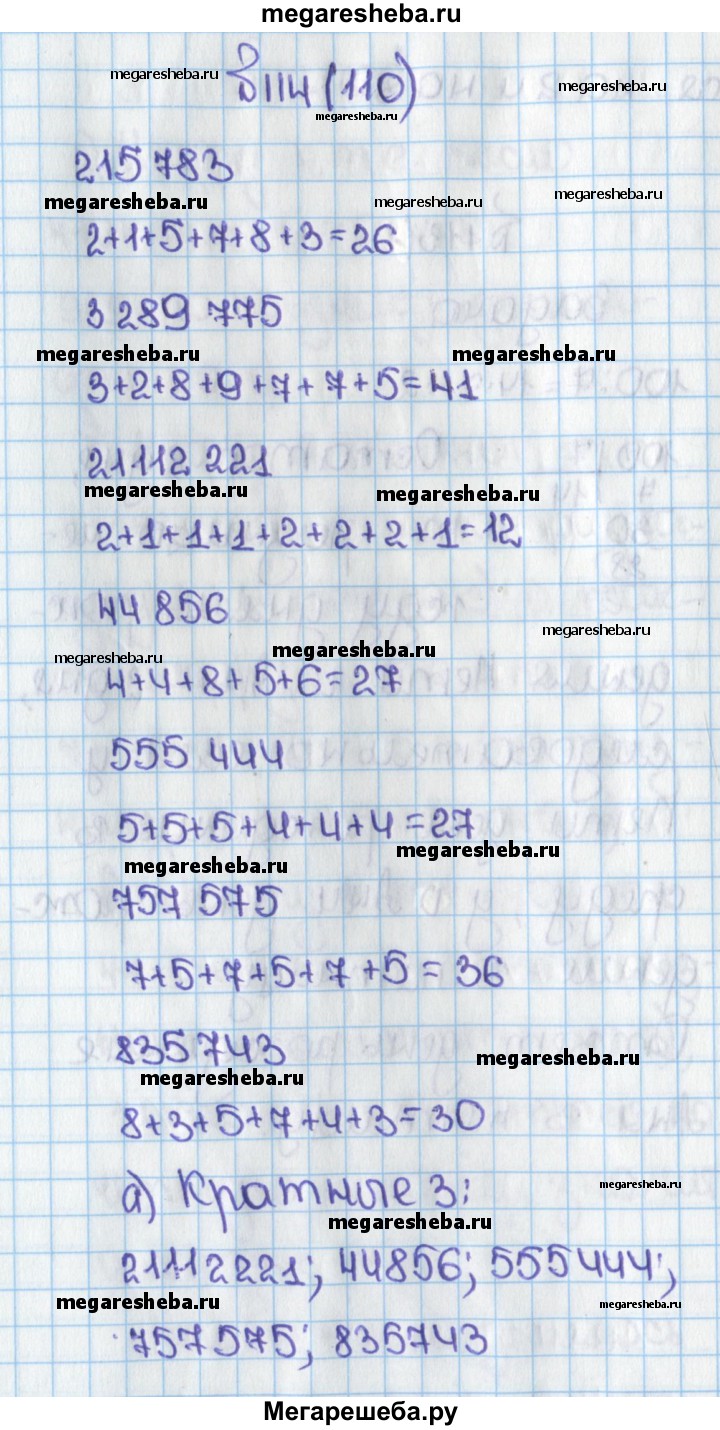 megaresheba.ru
megaresheba.ru
megaresheba.ru
№114 (110)
megaresheba.ru
215 783
megaresheba.ru megaresheba.ru megaresheba.ru
2+1+5+7+8+3=26
3 289 775
megaresheba.ru megaresheba.ru
3+2+8+9+7+7+5=41
21112 221
megaresheba.ru megaresheba.ru
2+1+1+1+2+2+2+1=12
44 856
megaresheba.ru megaresheba.ru megaresheba.ru
4+4+8+5+6=27
555 444
5+5+5+4+4+4=27
megaresheba.ru megaresheba.ru
757 575
7+5+7+5+7+5=36
835743
megaresheba.ru megaresheba.ru
8+3+5+7+4+3=30
а) Кратные 3:
megaresheba.ru megaresheba.ru
21112221; 44856; 555444;
megaresheba.ru megaresheba.ru
757575; 835743
Мегарешеба.ру